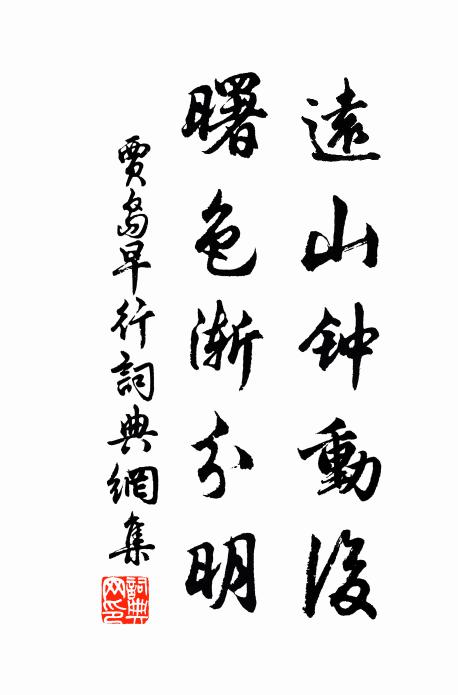 遠山钟動後
曙色漸分明
賈島早行詞典網集
詞典
网印